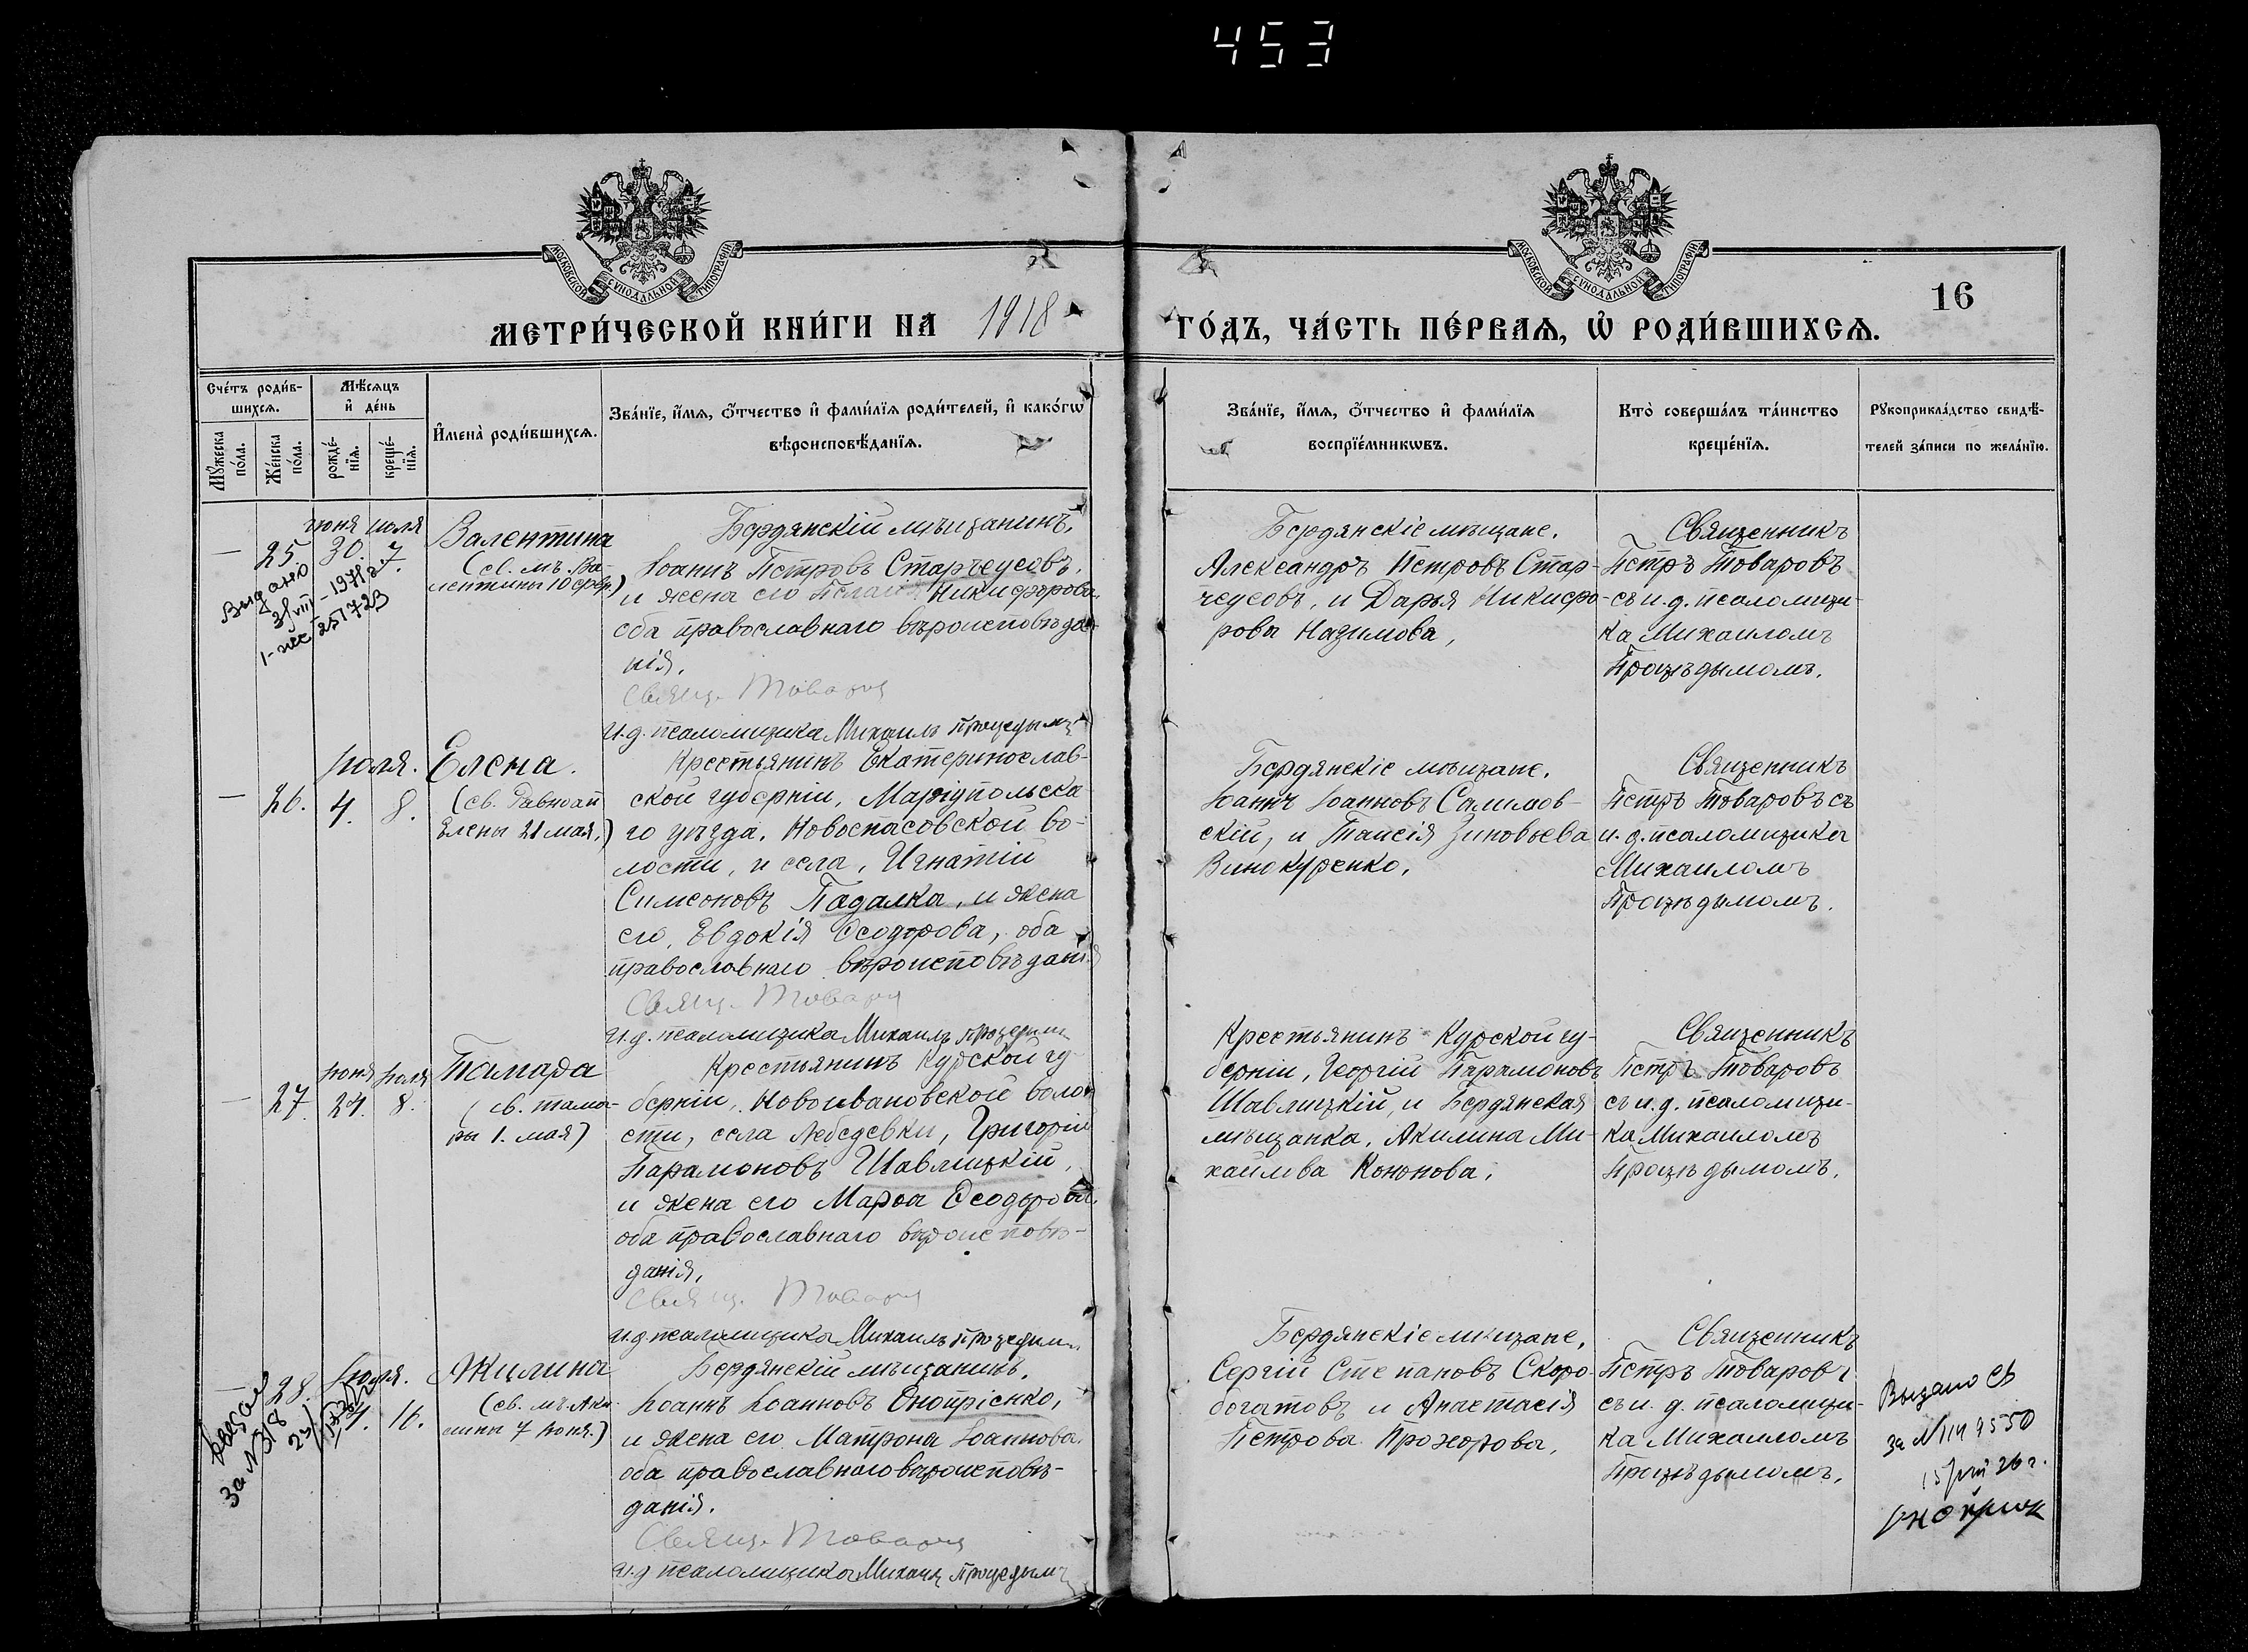 453
МОСКОВСКОЙ СУНОДАЛЬНОЙ ТИПОГРАФІИ
МОСКОВСКОЙ СУНОДАЛЬНОЙ ТИПОГРАФІИ
16
МЕТРИ́ЧЕСКОЙ КНИ́ГИ НА 1918
ГО́ДЪ, ЧА́СТЬ ПЕ́РВАѦ, Ѡ҆ РОДИ́ВШИХСѦ.
Сче́тъ роди́в-
шихсѧ.
Мꙋ́жеска
по́ла.
Же́нска
по́ла.
Мѣ́сѧцъ
и҆ де́нь
рожде́-
нїѧ.
креще́-
нїѧ.
И҆мена̀ роди́вшихсѧ.
Зва́нїе, и҆́мѧ, ѻ҆́тчество и҆ фами́лїѧ роди́телей, и҆ како́гѡ
вѣроисповѣ́данїѧ.
Зва́нїе, и҆́мѧ, ѻ҆́тчество и҆ фами́лїѧ
воспрїе́мникѡвъ.
Кто̀ соверша́лъ та́инство
креще́нїѧ.
Рꙋкоприкла́дство свидѣ́-
телей за́писи по жела́нїю.
— 25
іюня іюля
30. 7.
Выдано
31/VIII - 1971 г.
251723
Валентина
(св. мъ. Ва-
лентины 10 февр.)
Бердянскій мѣщанинъ,
Іоаннъ Петровъ Старчеусовъ,
и жена его Пелагія Никифорова
оба православнаго вѣроисповѣда-
нія.
Свящ. Товаровъ
И. д. псаломщика Михаилъ Процедымъ
Бердянскіе мѣщане,
Александръ Петровъ Стар-
чеусовъ, и Дарья Никифо-
рова Назимова,
Священникъ
Петръ Товаровъ
съ и. д. псаломщи-
ка Михаиломъ
Процѣдымомъ.
— 26.
Іюля.
4. 8.
Елена.
(св. Равноап
Елены 21 мая.)
Крестьянинъ Екатеринослав-
ской губерніи, Маріупольска-
го уѣзда, Новоспасовской во-
лости, и села, Игнатій
Симеоновъ Падалка, и жена
его, Евдокія Ѳеодорова, оба
православнаго вѣроисповѣданія
Свящ. Товаровъ
И. д. псаломщика Михаилъ Процедымъ
Бердянскіе мѣщане,
Іоаннъ Іоанновъ Салимов-
скій, и Таисія Зиновьева
Винокуренко,
Священникъ
Петръ Товаровъ съ
и. д. псаломщика
Михаиломъ
Процѣдымомъ.
— 27.
Іюня Іюля
24. 8.
Тамара
(св. тама-
ры 1. мая)
Крестьянинъ Курской гу-
берніи, Новоивановской воло-
сти, села Лебедевки, Григорій
Парамоновъ Шавлицкій,
и жена его Марѳа Ѳеодорова,
оба православнаго вѣроисповѣ-
данія,
Свящ. Товаровъ
и. д. псаломщика Михаилъ Процедымъ
Крестьянинъ Курской гу-
берніи, Георгій Парамоновъ
Шавлицкій, и Бердянская
мѣщанка, Акилина Ми-
хаилва Кононова,
Священникъ
Петръ Товаровъ
съ и. д. псаломщи-
ка Михаиломъ
Процѣдымомъ.
— 28.
Іюля.
16.
за N 318
Акилина
(св. мъ. Аки-
лины 7 Іюня.)
Бердянскій мѣщанинъ,
Іоаннъ Іоанновъ Онопріенко,
и жена его Матрона Іоаннова,
оба православнаго вѣроисповѣ-
данія.
Свящ. Товаровъ
и. д псаломщика Михаилъ Процедымъ
Бердянскіе мѣщане,
Сергій Степановъ Скоро-
богатовъ и Анастасія
Петрова Прохорова,
Священникъ
Петръ Товаровъ
съ и. д. псаломщи-
ка Михаиломъ
Процѣдымомъ.
Выдано св
за N
26 г.